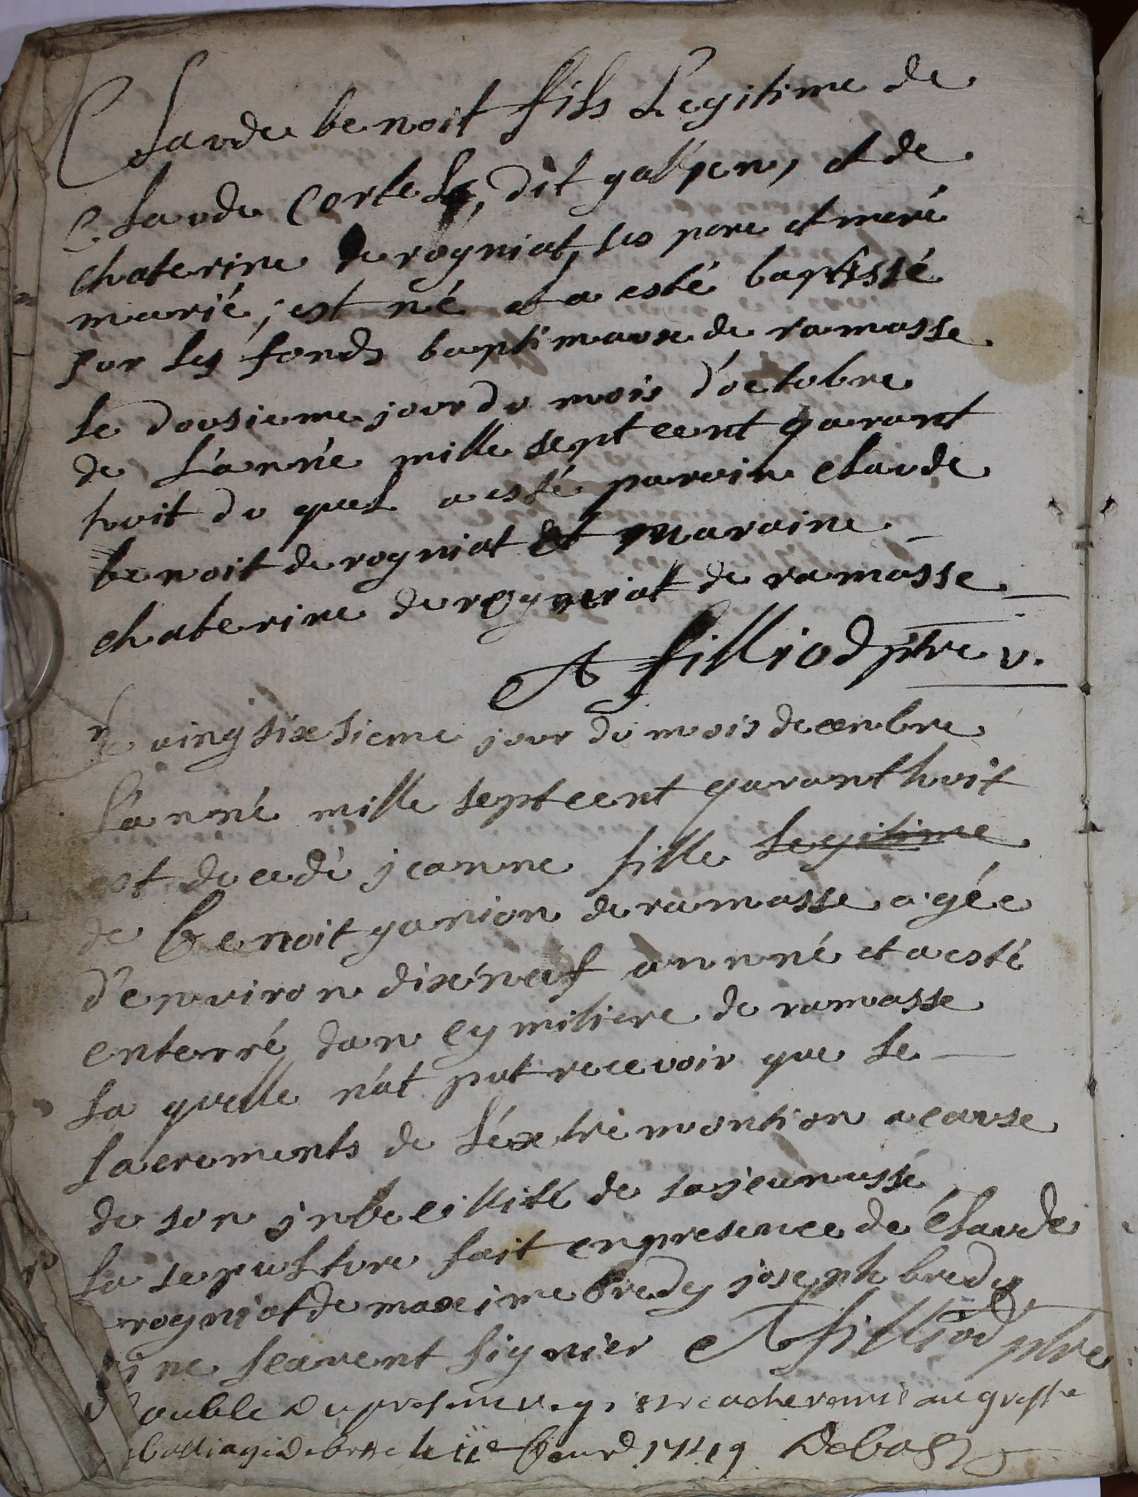 Claude benoit fils Legitime de
Claude Cortel, dit gallien, et de
chaterine derogniat, ses pere et meré
marié, est né et a esté baptissé
sur les fonds baptimaux de ramasse
le dousieme jour du mois d'octobre
de L'anné mille sept cent garant
huit du quel a esté parain claude
benoit derogniat et maraine
chaterine derogniat de ramasse
A filliod ptre v.
Le vingsixsieme jour du mois decenbre
L'anné mille sept cent garanthuit
est decedé jeanne fille Legitime
de benoit ganion de ramasse agée
d'environ dixneuf annné et a esté
enterré dan cymitiere de ramasse
La quelle n'at put recevoir que le
sacrements de L'éxtrémontion a cause
de son jnbecillité de sa jeunessé
La sepulture fait en presence de Claude
rogniat de maxime bredy joseph bredy
qui ne scavent signier A filliod ptre
Double du present registre a esté remis au greffe
balliage de bresse le 1749 Debost